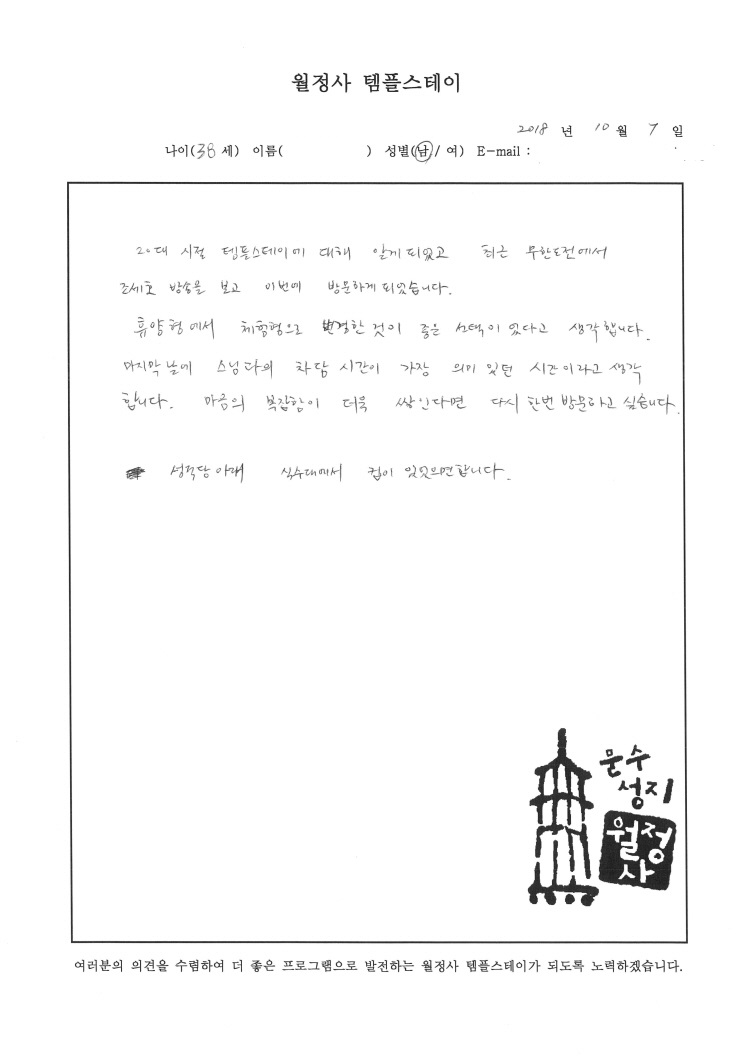 월정사 템플스테이
2018 년 10 월 7 일
나이(38 세) 이름( ) 성별(남/ 여) E-mail :
20대 시절 템플스테이에 대해 알게 되었고 최근 무한도전에서
조세호 방송을 보고 이번에 방문하게 되었습니다.
휴양형에서 체험형으로 변경한 것이 좋은 선택이 었다고 생각합니다.
마지막 날에 스님과의 차담 시간이 가장 의미 있던 시간이라고 생각
합니다. 마음의 복잡함이 더욱 쌓인다면 다시 한번 방문하고 싶습니다.
성적당 아래 식수대에서 컵이 있었으면합니다.
문수
성지
월정
사
여러분의 의견을 수렴하여 더 좋은 프로그램으로 발전하는 월정사 템플스테이가 되도록 노력하겠습니다.